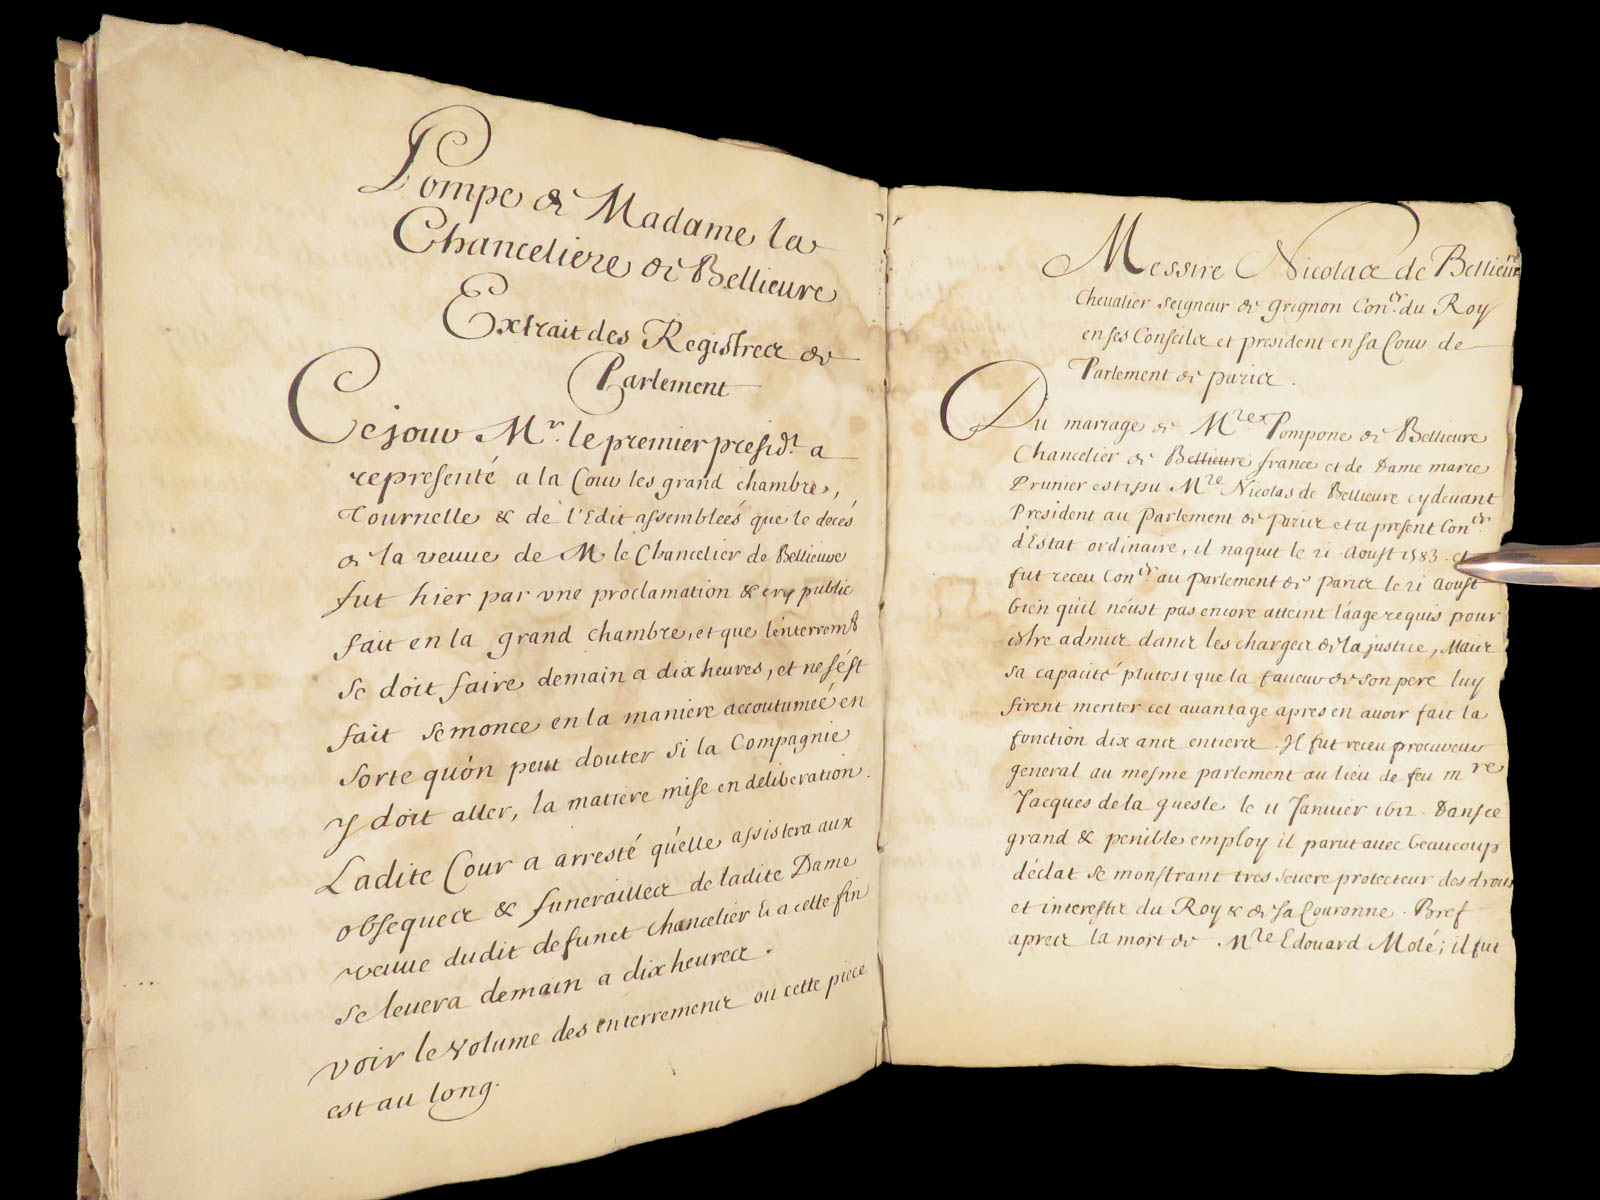 Pompe de Madame la
Chanceliere de Bellieure
Extrait des Registres du
Parlement
Ce jour Mr. le premier presidt. a
representé a la Cour les grand chambre,
Tournelle & de l'Edit assembleés que le decés
de la veuue de M le Chancelier de Bellieure
fut hier par vne proclamation & cry public
fait en la grand chambre, et que l'enterremt
se doit faire demain a dix heures, et ne s'ést
fait semonce en la maniere accoutumeé en
sorte qu'on peut douter si la Compagnie
y doit aller, la matiere mise en deliberation.
Ladite Cour a arresté qu'elle assistera aux
obseques & funerailles de ladite Dame
veuue dudit defunct Chancelier & a cette fin
se leuera demain a dix heures.
voir le volume des enterremens ou cette piece
est au long.
Messire Nicolas de Bellieure
Cheualier seigneur de Grignon Coner. du Roy
en ses Conseils et president en sa Cour de
Parlement de Paris.
Du mariage de Mre Pompone de Bellieure
Chancelier de Bellieure france et de Dame marie
Prunier est issu Mre Nicolas de Bellieure cy deuant
President au Parlement de Paris et a present Coner
d'Estat ordinaire, il naquit le 21 Aoust 1583. et
fut receu Coner au parlement de Paris le 21 Aoust
bien qu'il n'eust pas encore atteint l'aage requis pour
estre admis dans les charges de la justice, Mais
sa capacité plutost que la faueur de son pere luy
firent meriter cet auantage apres en auoir fait la
fonction dix ans entiers. Il fut receu procureur
general au mesme parlement au lieu de feu Mre
Jacques de la guesle le 11 Januier 1612. Dans ce
grand & penible employ il parut auec beaucoup
déclat se monstrant tres seuere protecteur des droits
et interests du Roy & de sa Couronne. Bref
apres la mort de Mre Edouard Molé; il fut